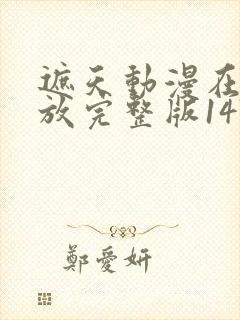 遮天動漫在
放完整版14
鄭愛妍